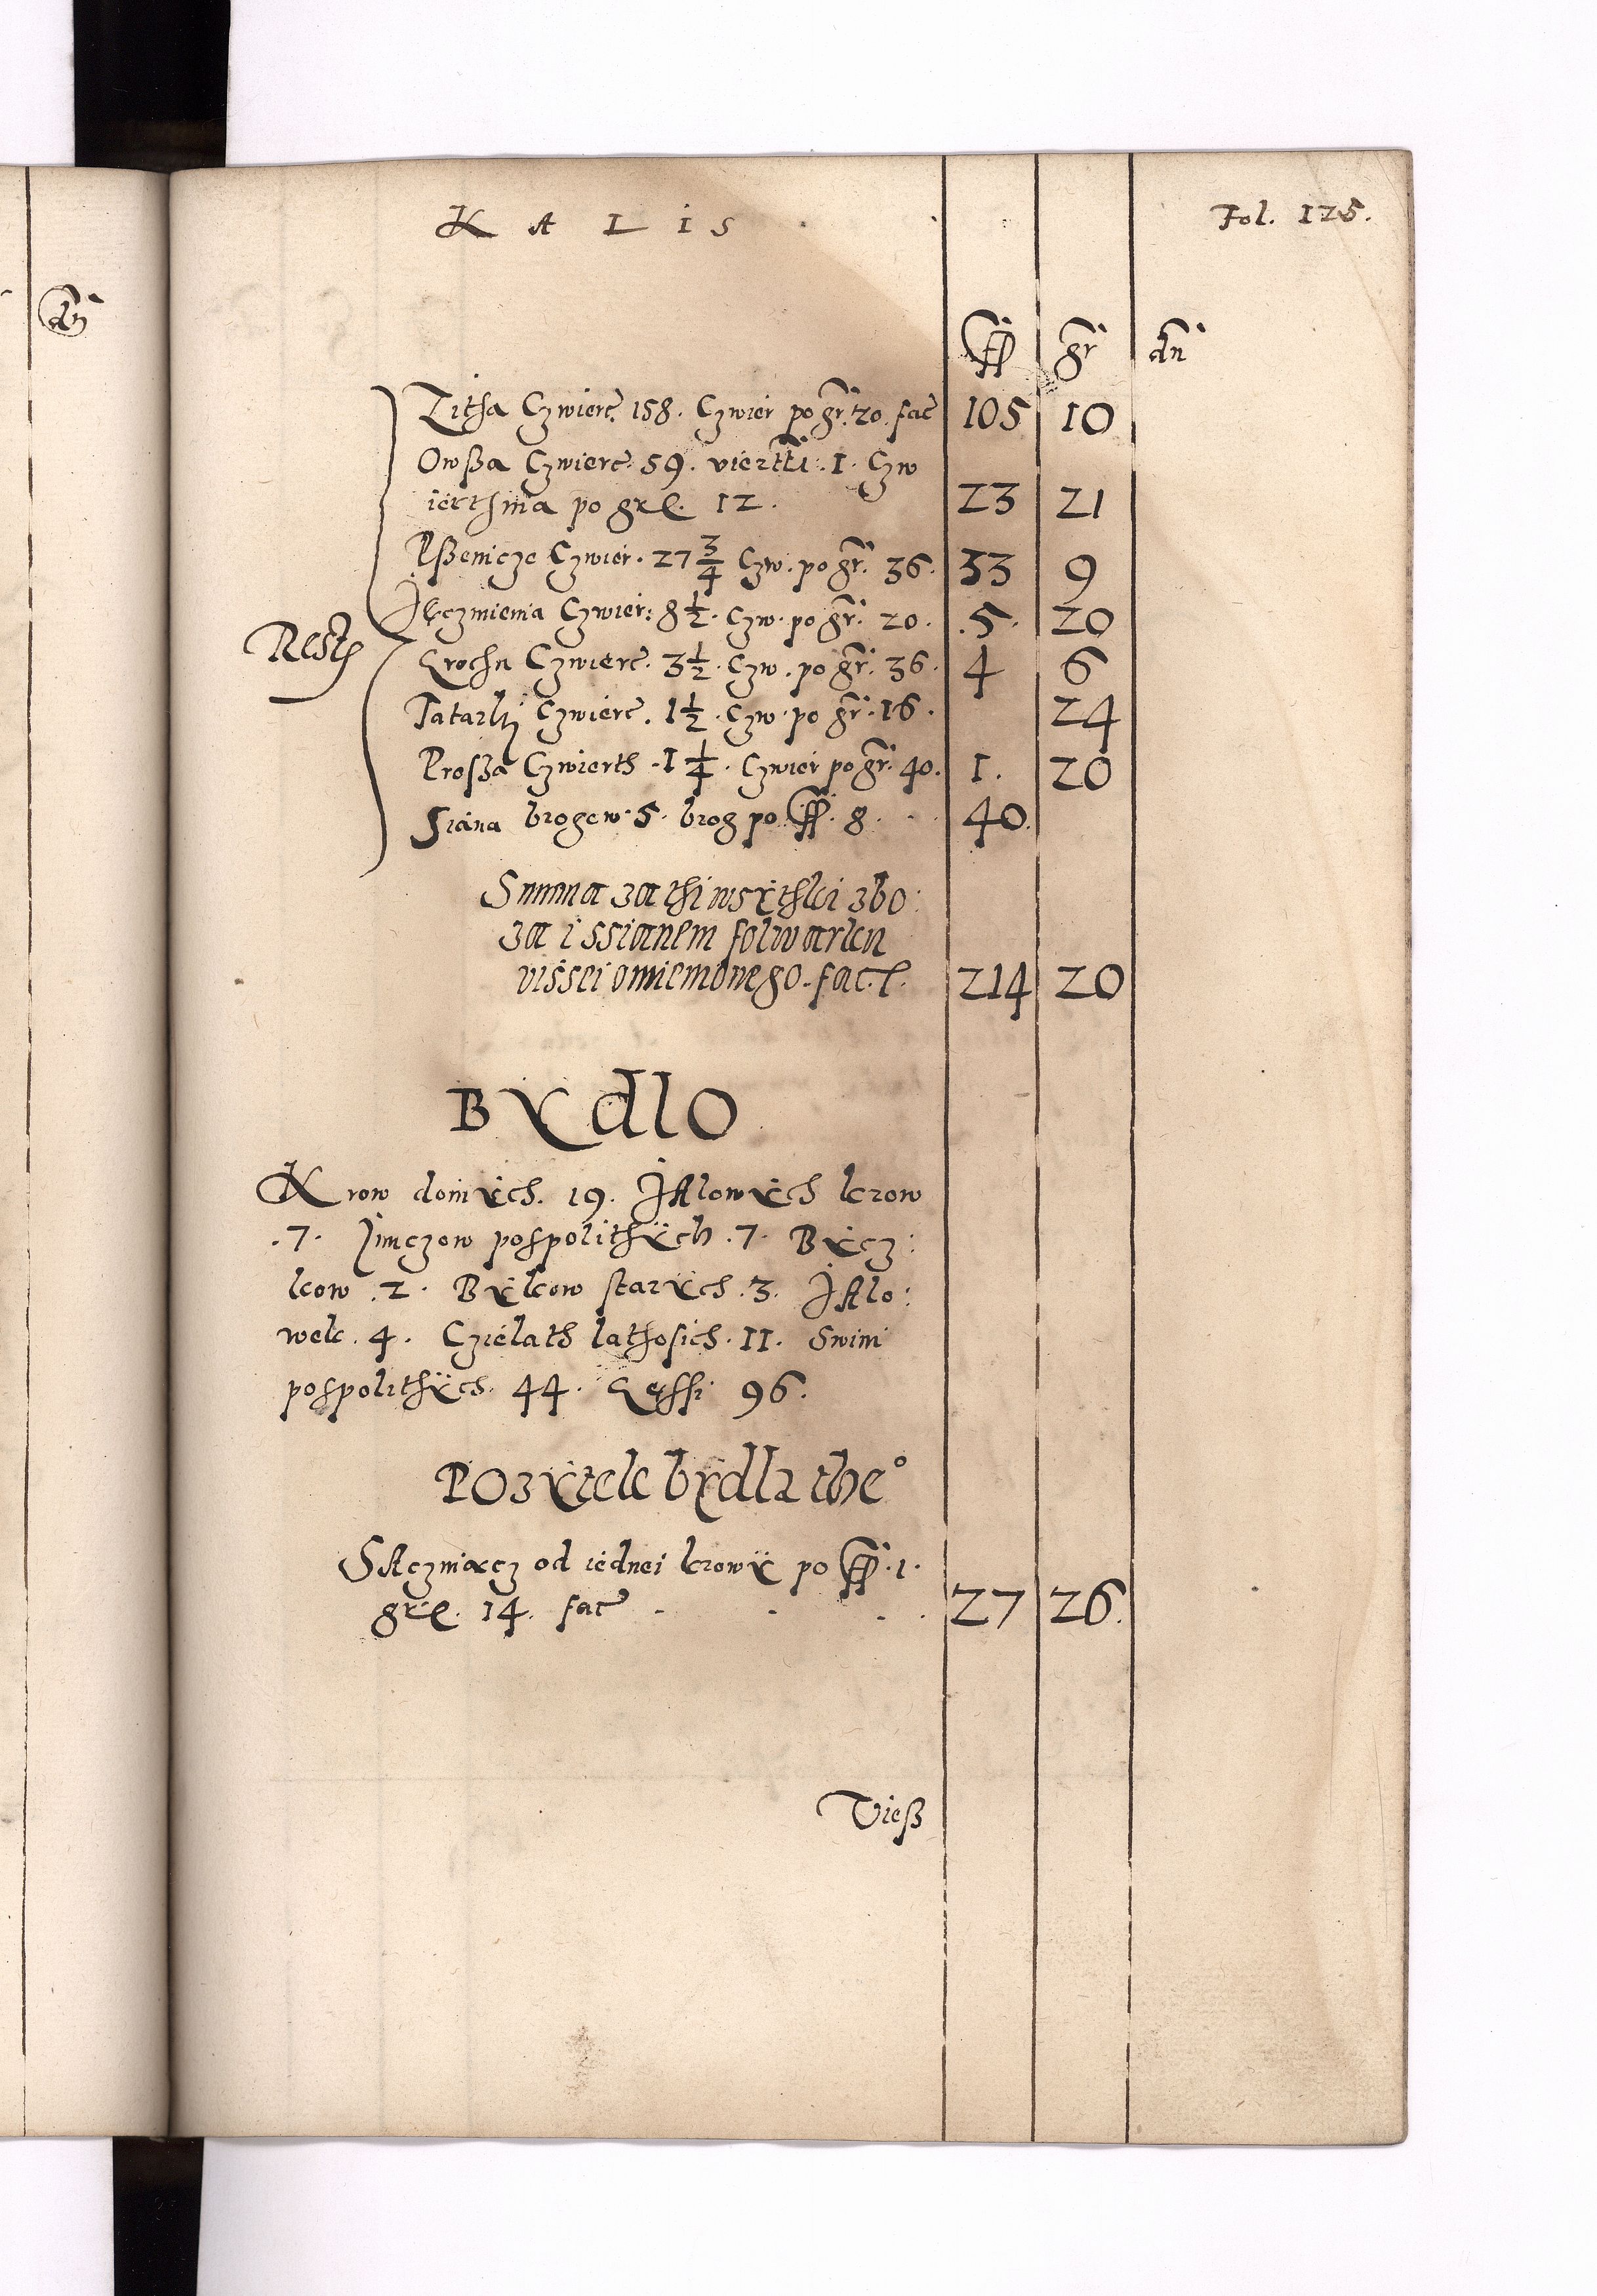 KALIS
Fol. 125.
dn
ff gr dn
Zitha Czwierc. 158. Czwier po gr. 20. fac 105 10
Owßa Czwierc. 59. viertli. 1. Czw
ierthnia po grl. 12. 23 21
Pßenicze Czwier. 27 3/4 Czw. po gr. 36. 33 9
Jęczmienia Czwier: 8 1/2. Czw. po gr. 20. .5. 20
Resth
Grochu Czwierc. 3 1/2. Czw. po gr. 36. 4 6
Tatarki Czwierc. 1 1/2. Czw. po gr. 16. 24
Proßa Czwierth. 1 1/4. Czwier po gr. 40. 1. 20
Siana brogow. 5. brog po ff. 8. 40.
Summa za thi wsÿthki zbo:
za i ssianem folwarku
vissei omiemonego. fac.l. 214 20
BYdlo
Krow doinÿch. 19. JAlowÿch krow
.7. Junczow pospolithÿch .7. Bÿcz:
kow .2. Bÿkow starÿch .3. JAlo:
wek. 4. Czielath lathosich. 11. Swini
pospolithÿch. 44. Gęssi 96.
POzÿtek bydla the°
SAcziniacz od iednei krowÿ po ff. 1.
grl. 14. fac 27 26.
Vieß